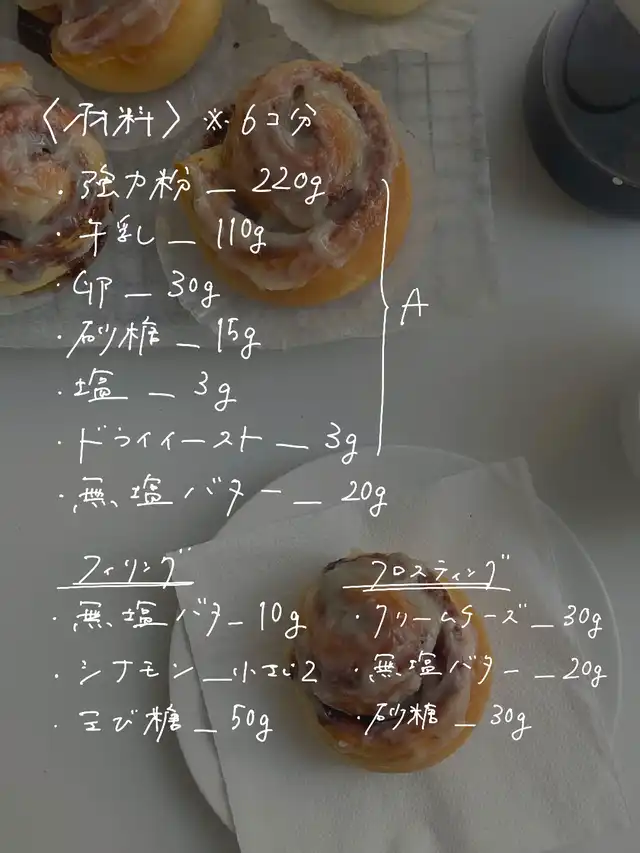 〈材料〉 ※6コ分
・強力粉 _ 220g
・牛乳 _ 110g
・卵 _ 30g
A
・砂糖 _ 15g
・塩 _ 3g
・ドライイースト _ 3g
・無塩バター _ 20g
フィリング
・無塩バター _ 10g
・シナモン _ 小さじ2
・きび糖 _ 50g
フロスティング
・クリームチーズ _ 30g
・無塩バター _ 20g
・砂糖 _ 30g